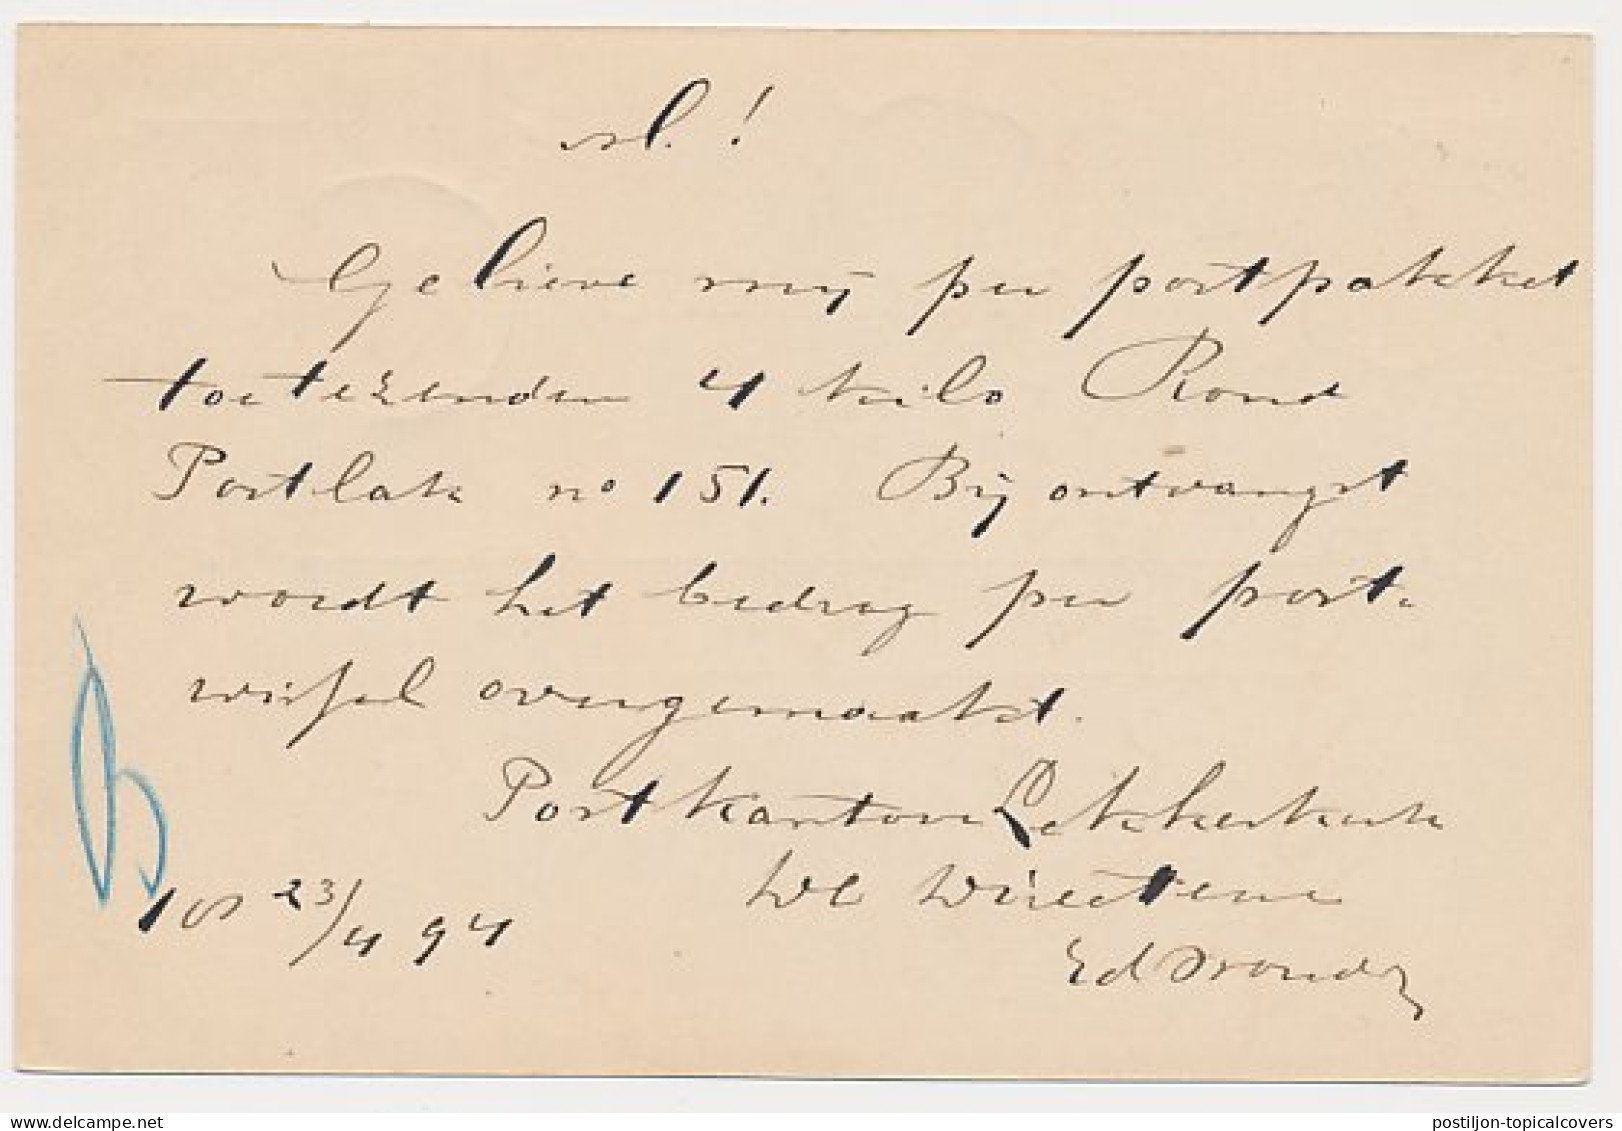 !
Gelieve mij per postpakket
toetezenden 4 kilo Rond
Postlak no 151. Bij ontvangst
wordt het bedrag per post-
wissel overgemaakt.
Postkantoor Lekkerkerk
De Directeur
23/4 94
Ed
postiljon-topicalcovers